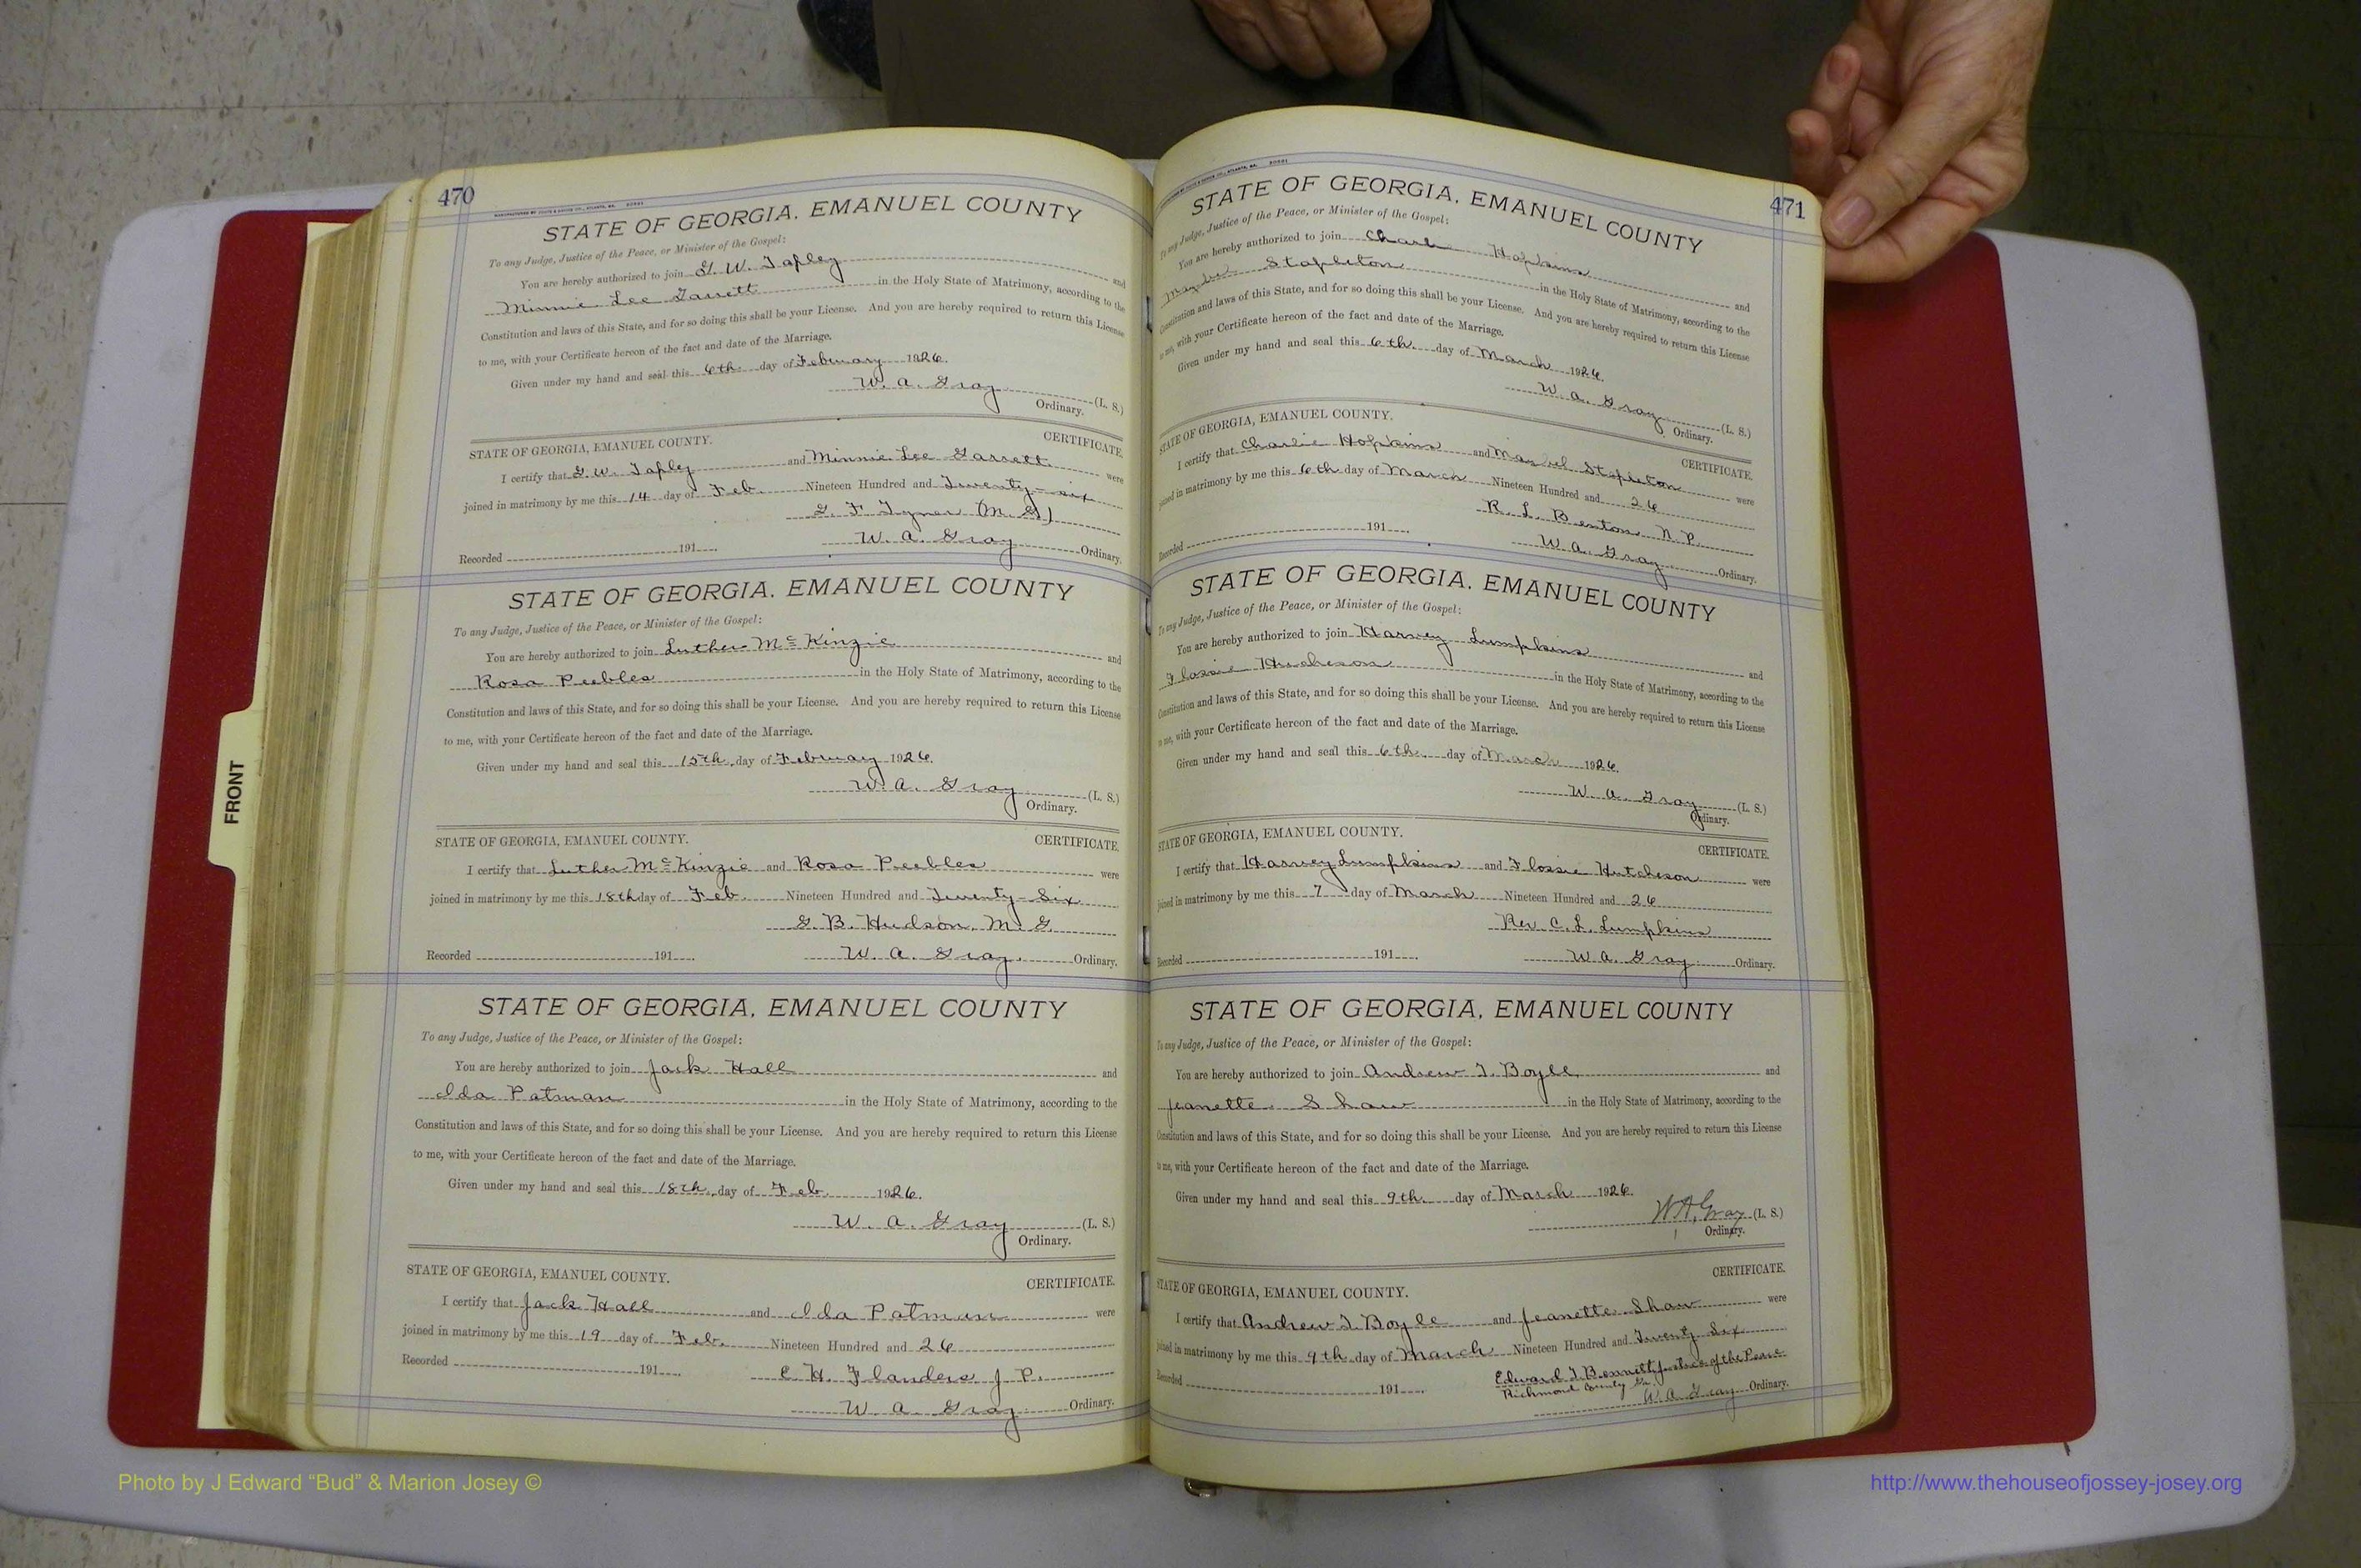 470
STATE OF GEORGIA, EMANUEL COUNTY
To any Judge, Justice of the Peace, or Minister of the Gospel:
You are hereby authorized to join G. W. Tapley and
Minnie Lee Garrett in the Holy State of Matrimony, according to the
Constitution and laws of this State, and for so doing this shall be your License. And you are hereby required to return this License
to me, with your Certificate hereon of the fact and date of the Marriage.
Given under my hand and seal this 6th day of February 1926.
W. A. Gray (L. S.)
Ordinary.
STATE OF GEORGIA, EMANUEL COUNTY. CERTIFICATE.
I certify that G. W. Tapley and Minnie Lee Garrett were
joined in matrimony by me this 14 day of Feb. Nineteen Hundred and Twenty-six
G. F. Tyner (M. G)
Recorded 191 W. A. Gray Ordinary.
STATE OF GEORGIA, EMANUEL COUNTY
To any Judge, Justice of the Peace, or Minister of the Gospel:
You are hereby authorized to join Luther McKinzie and
Rosa Peebles in the Holy State of Matrimony, according to the
Constitution and laws of this State, and for so doing this shall be your License. And you are hereby required to return this License
to me, with your Certificate hereon of the fact and date of the Marriage.
Given under my hand and seal this 15th day of February 1926.
W. A. Gray (L. S.)
Ordinary.
STATE OF GEORGIA, EMANUEL COUNTY. CERTIFICATE.
I certify that Luther McKinzie and Rosa Peebles were
joined in matrimony by me this 18th day of Feb. Nineteen Hundred and Twenty-Six
G. B. Hudson, M. G.
Recorded 191 W. A. Gray. Ordinary.
STATE OF GEORGIA, EMANUEL COUNTY
To any Judge, Justice of the Peace, or Minister of the Gospel:
You are hereby authorized to join Jack Hall and
Ida Patman in the Holy State of Matrimony, according to the
Constitution and laws of this State, and for so doing this shall be your License. And you are hereby required to return this License
to me, with your Certificate hereon of the fact and date of the Marriage.
Given under my hand and seal this 18th day of Feb. 1926.
W. A. Gray (L. S.)
Ordinary.
STATE OF GEORGIA, EMANUEL COUNTY. CERTIFICATE.
I certify that Jack Hall and Ida Patman were
joined in matrimony by me this 19 day of Feb. Nineteen Hundred and 26
Recorded 191 E. H. Flanders J. P.
W. A. Gray Ordinary.
471
STATE OF GEORGIA, EMANUEL COUNTY
To any Judge, Justice of the Peace, or Minister of the Gospel:
You are hereby authorized to join Hopkins and
Stapleton in the Holy State of Matrimony, according to the
Constitution and laws of this State, and for so doing this shall be your License. And you are hereby required to return this License
to me, with your Certificate hereon of the fact and date of the Marriage.
Given under my hand and seal this 6th day of March 1926.
W. A. Gray (L. S.)
Ordinary.
STATE OF GEORGIA, EMANUEL COUNTY. CERTIFICATE.
I certify that Charlie Hopkins and Stapleton were
joined in matrimony by me this 6th day of March Nineteen Hundred and 26
R. L. Benton N. P.
Recorded 191 W. A. Gray Ordinary.
STATE OF GEORGIA, EMANUEL COUNTY
To any Judge, Justice of the Peace, or Minister of the Gospel:
You are hereby authorized to join Harvey Lumpkins and
Flossie Hucheson in the Holy State of Matrimony, according to the
Constitution and laws of this State, and for so doing this shall be your License. And you are hereby required to return this License
to me, with your Certificate hereon of the fact and date of the Marriage.
Given under my hand and seal this 6th day of March 1926.
W. A. Gray (L. S.)
Ordinary.
STATE OF GEORGIA, EMANUEL COUNTY.
CERTIFICATE.
I certify that Harvey Lumpkins and Flossie Hutcheson were
joined in matrimony by me this 7 day of March Nineteen Hundred and 26
Rev C. L. Lumpkins
Recorded 191 W. A. Gray. Ordinary.
STATE OF GEORGIA, EMANUEL COUNTY
To any Judge, Justice of the Peace, or Minister of the Gospel:
You are hereby authorized to join Andrew J. Boyle and
Jeanette Shaw in the Holy State of Matrimony, according to the
Constitution and laws of this State, and for so doing this shall be your License. And you are hereby required to return this License
to me, with your Certificate hereon of the fact and date of the Marriage.
Given under my hand and seal this 9th day of March 1926.
W A Gray (L. S.)
Ordinary.
CERTIFICATE.
STATE OF GEORGIA, EMANUEL COUNTY.
I certify that Andrew J. Boyle and Jeanette Shaw were
joined in matrimony by me this 9th day of March Nineteen Hundred and Twenty Six
Edward J. Bennett Justice of the Peace
Richmond County Ga.
Recorded 191 W. A. Gray Ordinary.
FRONT
Photo by J Edward “Bud” & Marion Josey ©
http://www.thehouseofjossey-josey.org